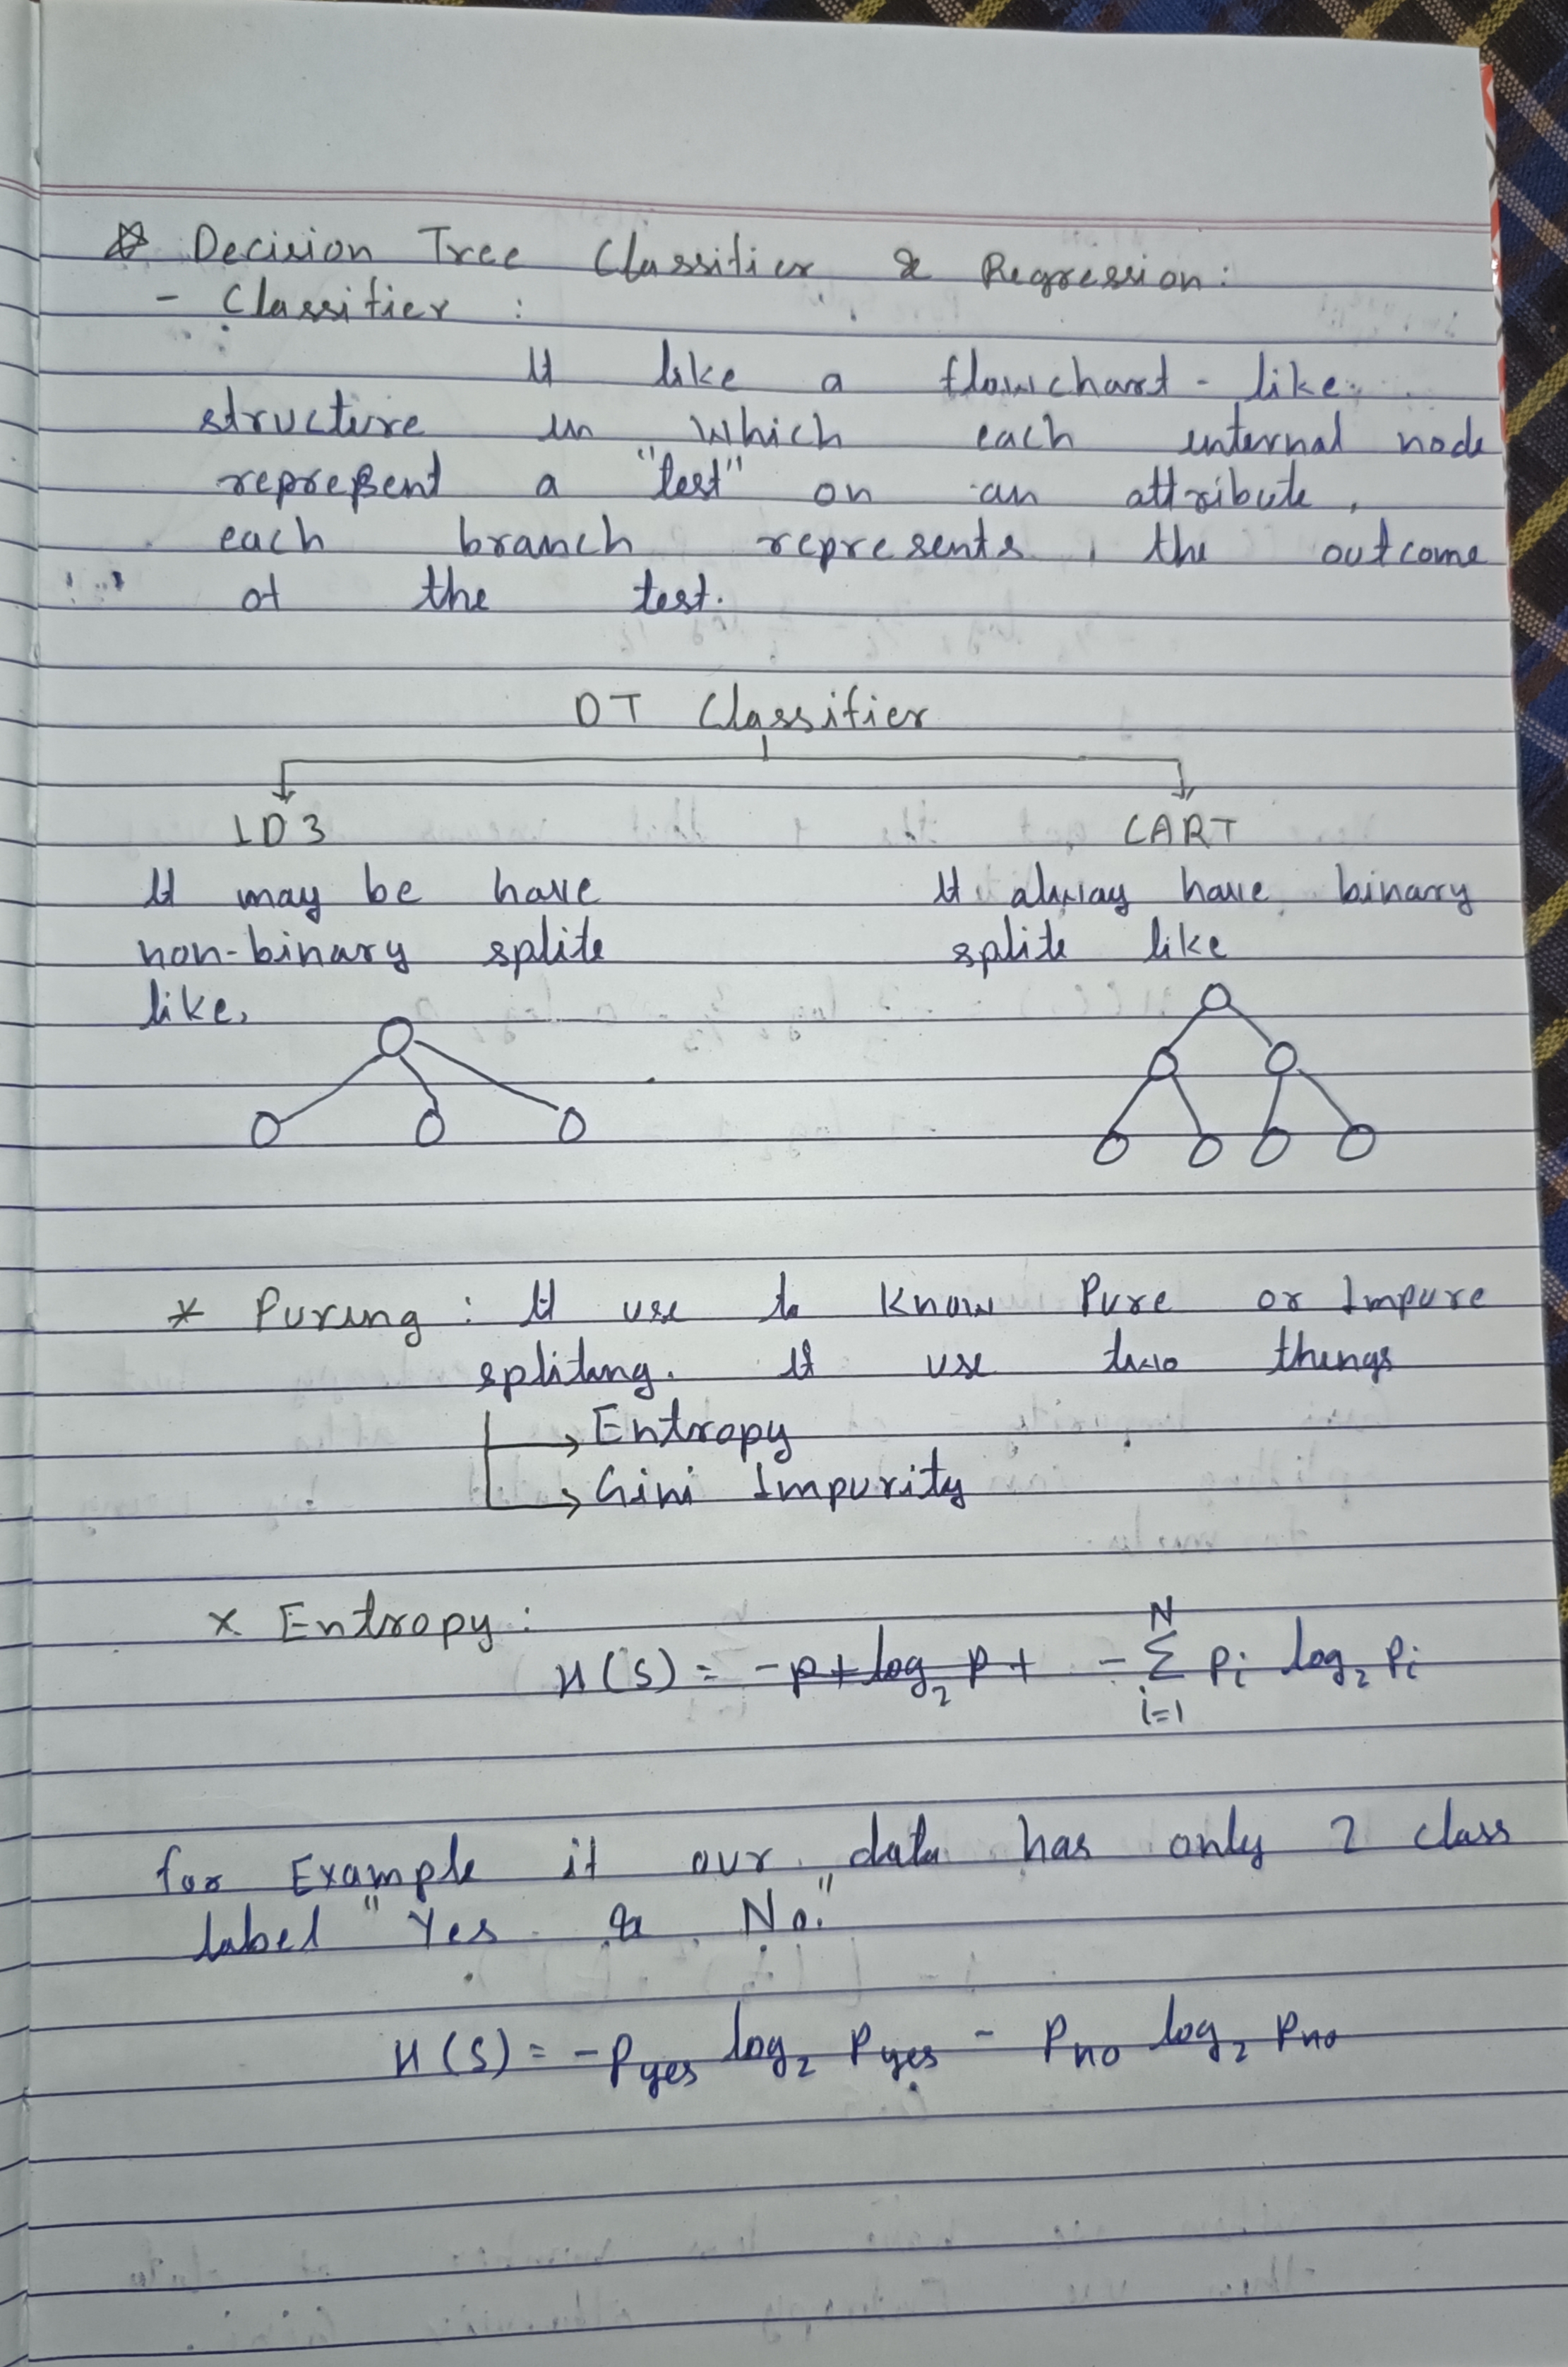 ☆ Decision Tree Classifier & Regression:
- Classifier :
It like a flowchart - like
structure in which each internal node
represent a "test" on an attribute,
each branch represents, the outcome
of the test.
DT Classifier
ID3 CART
It may be have It alway have binary
non-binary splite splite like
like,
* Puring : It use to know Pure or Impure
spliting. It use two things
→ Entropy
→ Gini Impurity
x Entropy :
H(S) = -p+ log₂ p+ - N Σ i=1 pi log₂ pi
for Example if our data has only 2 class
label "Yes & No."
H(S) = -Pyes log₂ Pyes - Pno log₂ Pno